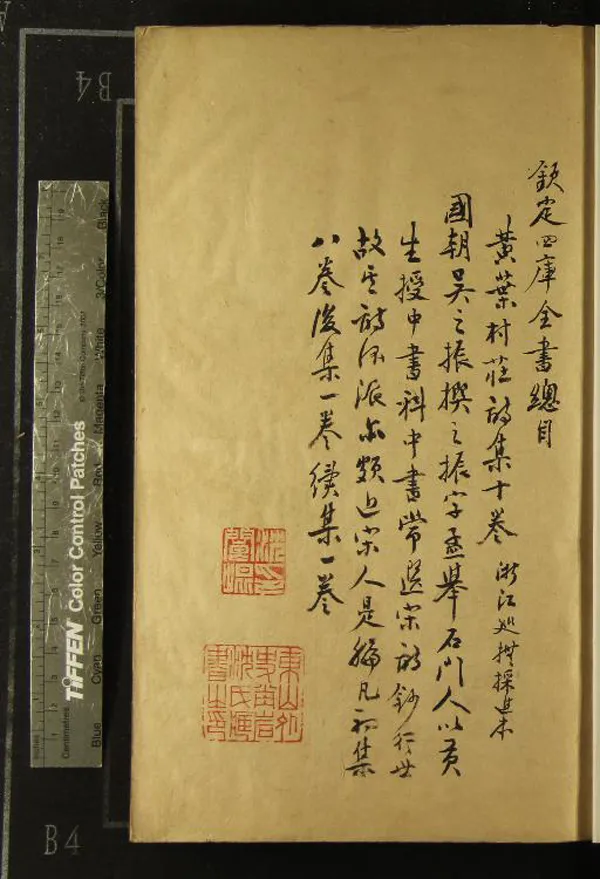 欽定四庫全書總目
黃葉村莊詩集十卷 浙江巡撫採進本
國朝吳之振撰之振字孟舉石門人以貢
生授中書科中書嘗選宋詩鈔行世
故其詩流派亦頗近宋人是編凡初集
八卷後集一卷續集一卷
B4
B4
TIFFEN Color Control Patches
© The Tiffen Company, 2007
Inches
Centimetres
Blue
Cyan
Green
Yellow
Red
Magenta
White
3/Color
Black